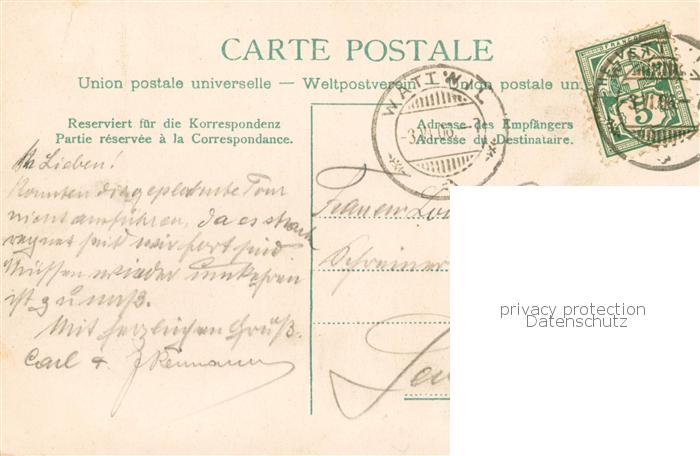 CARTE POSTALE
Union postale universelle — Weltpostverein — Union postale un
Reserviert für die Korrespondenz
Partie réservée à la Correspondance.
Adresse des Empfängers
Adresse du Destinataire.
WATTWIL
-3.VI.06.-7
FRANCO
5
Lieben!
Konnten die geplante Tour
nicht ausführen, da es stark
regnet seit wir fort sind.
Müssen wieder umkehren
ist zu naß.
Mit herzlichen Gruß.
Carl &
Schreiner
privacy protection
Datenschutz